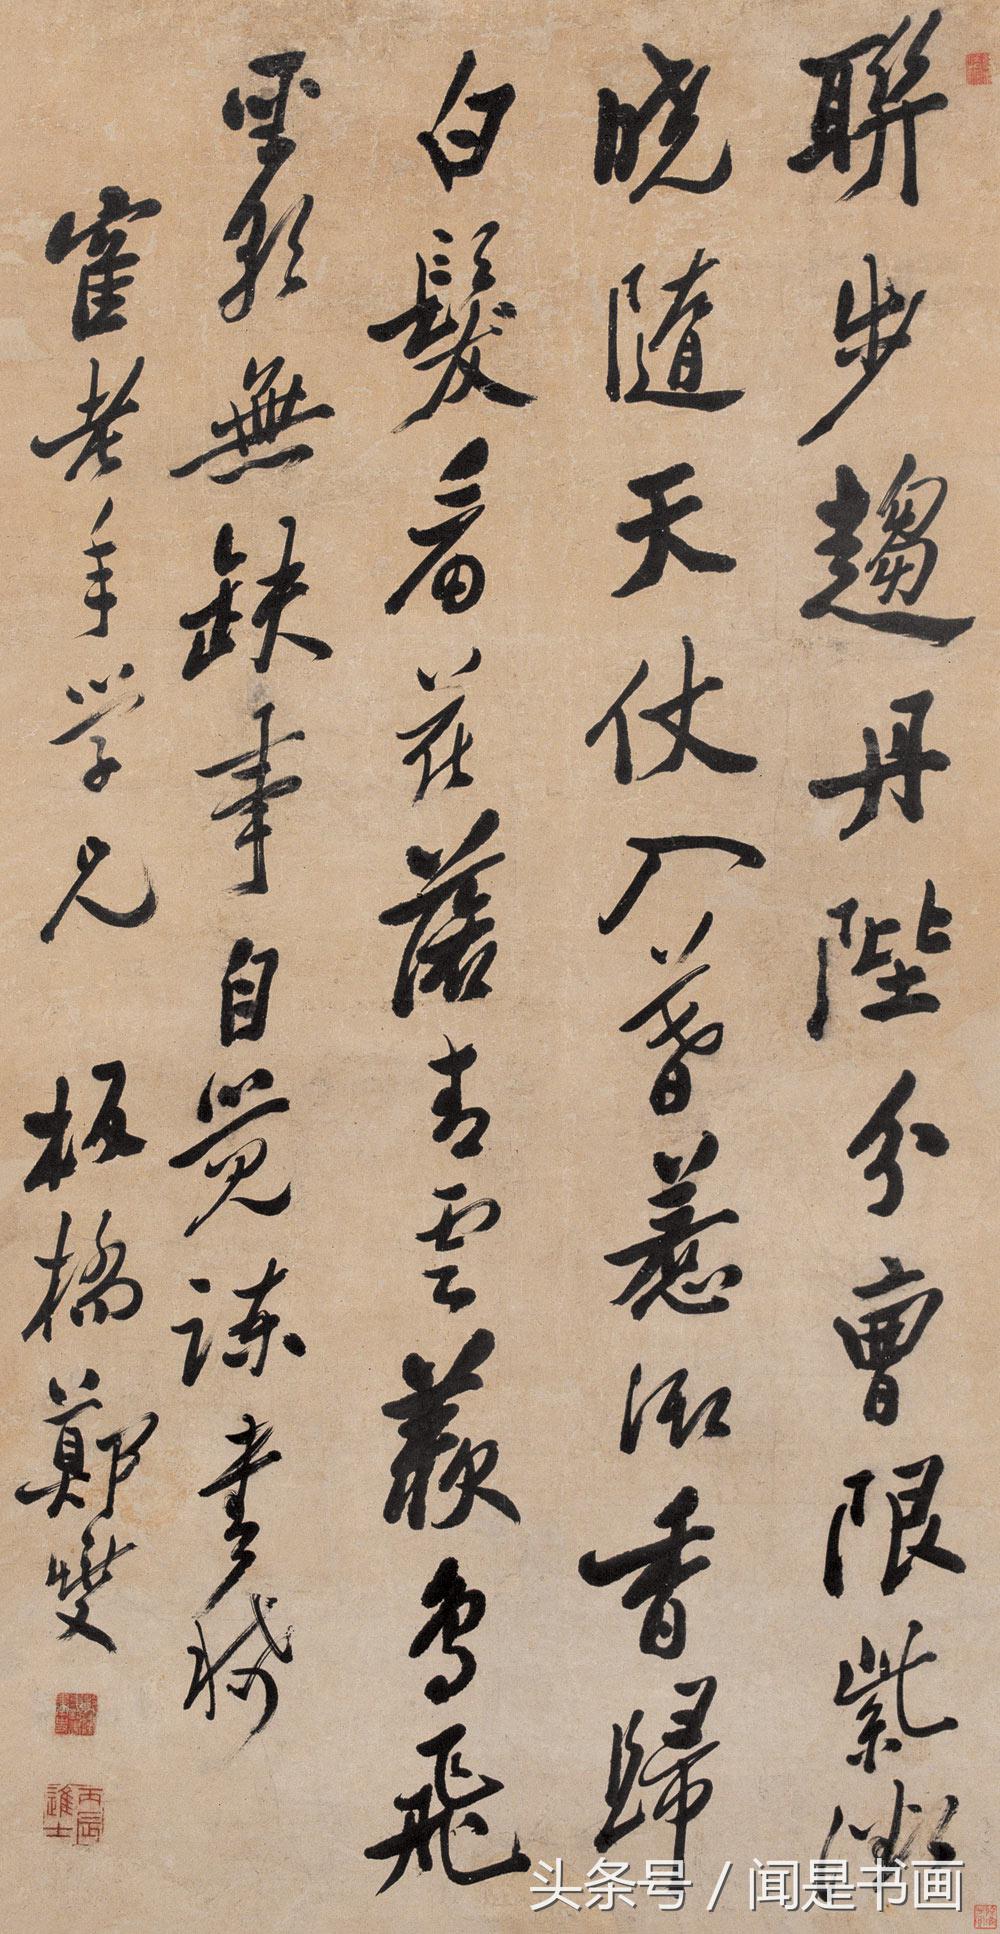 聯步趨丹陛分曹限紫微
曉隨天仗入暮惹御香歸
白髮看花落青雲羨鳥飛
聖朝無缺事自覺諫書稀
寉老年学兄 板橋鄭燮
丙辰進士
头条号 / 闻是书画